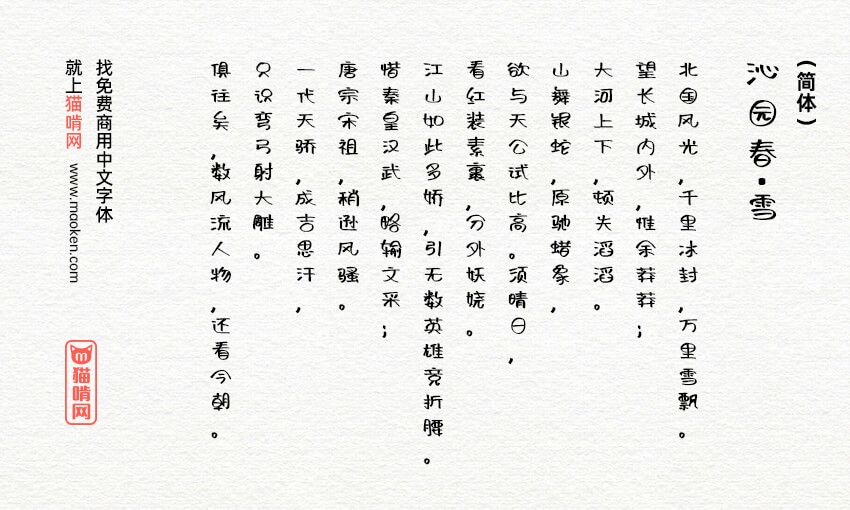 （简体）
沁园春·雪
北国风光,千里冰封,万里雪飘。
望长城内外,惟余莽莽;
大河上下,顿失滔滔。
山舞银蛇,原驰蜡象,
欲与天公试比高。须晴日,
看红装素裹,分外妖娆。
江山如此多娇,引无数英雄竞折腰。
惜秦皇汉武,略输文采;
唐宗宋祖,稍逊风骚。
一代天骄,成吉思汗,
只识弯弓射大雕。
俱往矣,数风流人物,还看今朝。
找免费商用中文字体
就上猫啃网 www.maoken.com
猫啃网